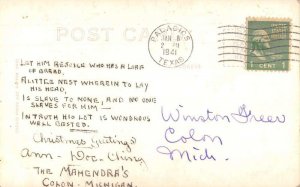 POST CARD
PALACIOS
JAN 8
2 PM
1941
TEXAS
1 CENT 1
LET HIM REJOICE WHO HAS A LOAF
OF BREAD,
A LITTLE NEST WHEREIN TO LAY
HIS HEAD,
IS SLAVE TO NONE, AND NO ONE
SLAVES FOR HIM —
IN TRUTH HIS LOT IS WONDROUS
WELL
Christmas Greetings
Ann - Doc. Ching
THE MAHENDRA'S
COLON - MICHIGAN.
Winston Greer
Colon
Mich.